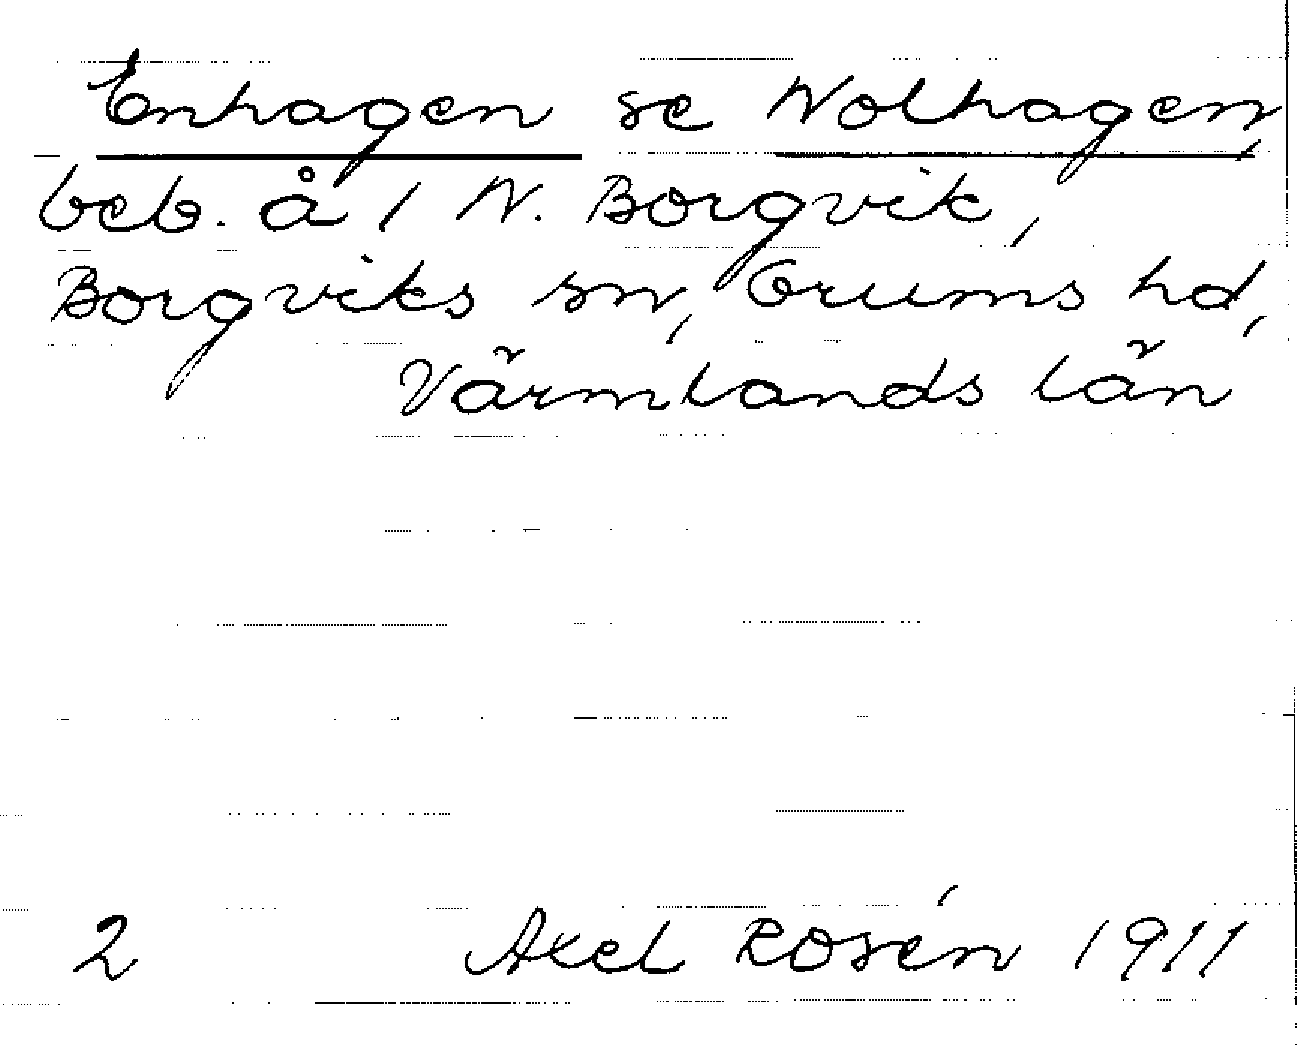 Enhagen se Nolhagen,
beb. å 1 N. Borgvik,
Borgviks sn, Grums hd,
Värmlands län
2 Axel Rosén 1911